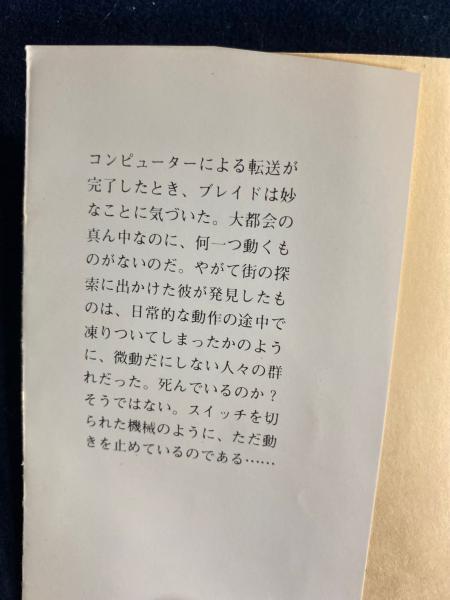 コンピューターによる転送が
完了したとき、ブレイドは妙
なことに気づいた。大都会の
真ん中なのに、何一つ動くも
のがないのだ。やがて街の探
索に出かけた彼が発見したも
のは、日常的な動作の途中で
凍りついてしまったかのよう
に、微動だにしない人々の群
れだった。死んでいるのか？
そうではない。スイッチを切
られた機械のように、ただ動
きを止めているのである……